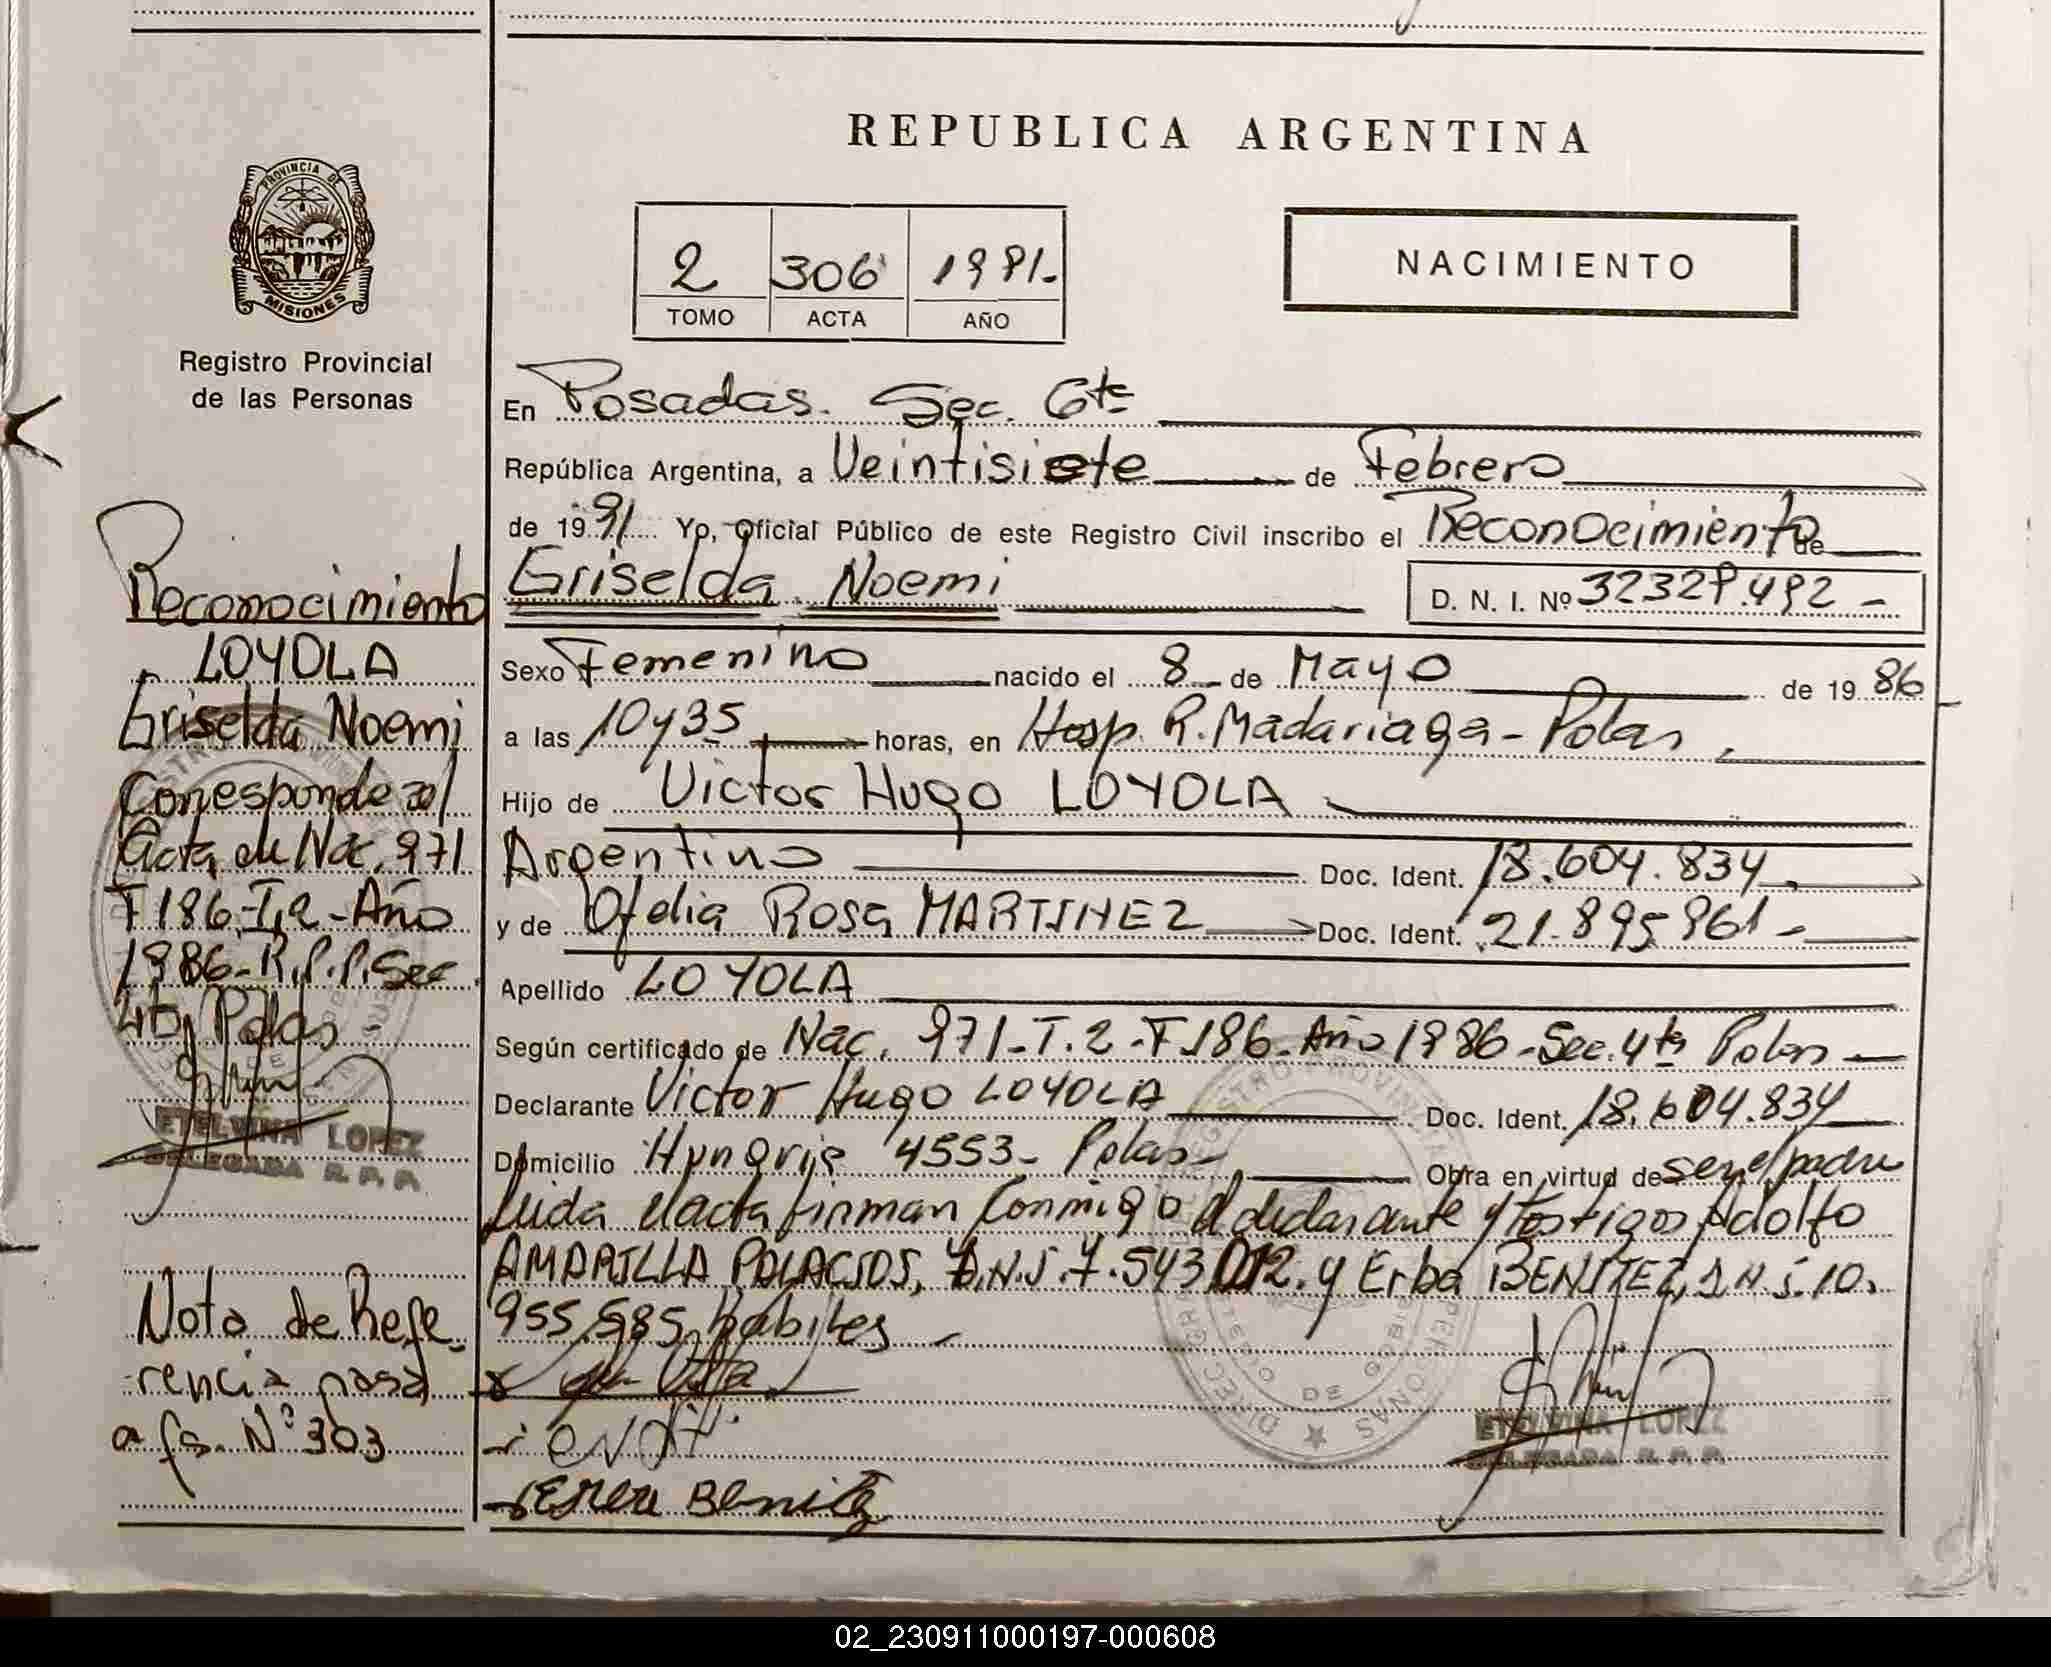 REPUBLICA ARGENTINA
PROVINCIA DE
MISIONES
Registro Provincial
de las Personas
2 306 1991.
TOMO ACTA AÑO
NACIMIENTO
En Posadas. Sec. 6ta
República Argentina, a Veintisiete de Febrero
de 1991 Yo, Oficial Público de este Registro Civil inscribo el Reconocimiento de
Griselda Noemi D. N. I. Nº 32329.492 -
Sexo Femenino nacido el 8 de Mayo de 1986
a las 10 y 35 horas, en Hosp. R. Madariaga - Pdas,
Hijo de Victor Hugo LOYOLA
Argentino Doc. Ident. 18.604.834
y de Ofelia Rosa MARTINEZ Doc. Ident. 21.895.961 -
Apellido LOYOLA
Según certificado de Nac. 971 - T. 2 - F 186 - Año 1986 - Sec. 4ta Pdas
Declarante Victor Hugo LOYOLA Doc. Ident. 18.604.834
Domicilio Hungria 4553 - Pdas - Obra en virtud de ser el padre
leida el acta firman conmigo el declarante y testigos Adolfo
AMARILLA PALACIOS, D.N.I. 7.543.012. y Erba BENITEZ, D N I. 10.
955.585, habiles -
ETELVINA LOPEZ
DELEGADA R. P. P.
Benitez
Reconocimiento
LOYOLA
Griselda Noemi
Corresponde al
Acta de Nac. 971
F 186 - T. 2 - Año
1986 - R.P.P. Sec
4ta Pdas -
ETELVINA LOPEZ
DELEGADA R. P. P.
Nota de Refe-
rencia pasa
a fs. Nº 303
02_230911000197-000608